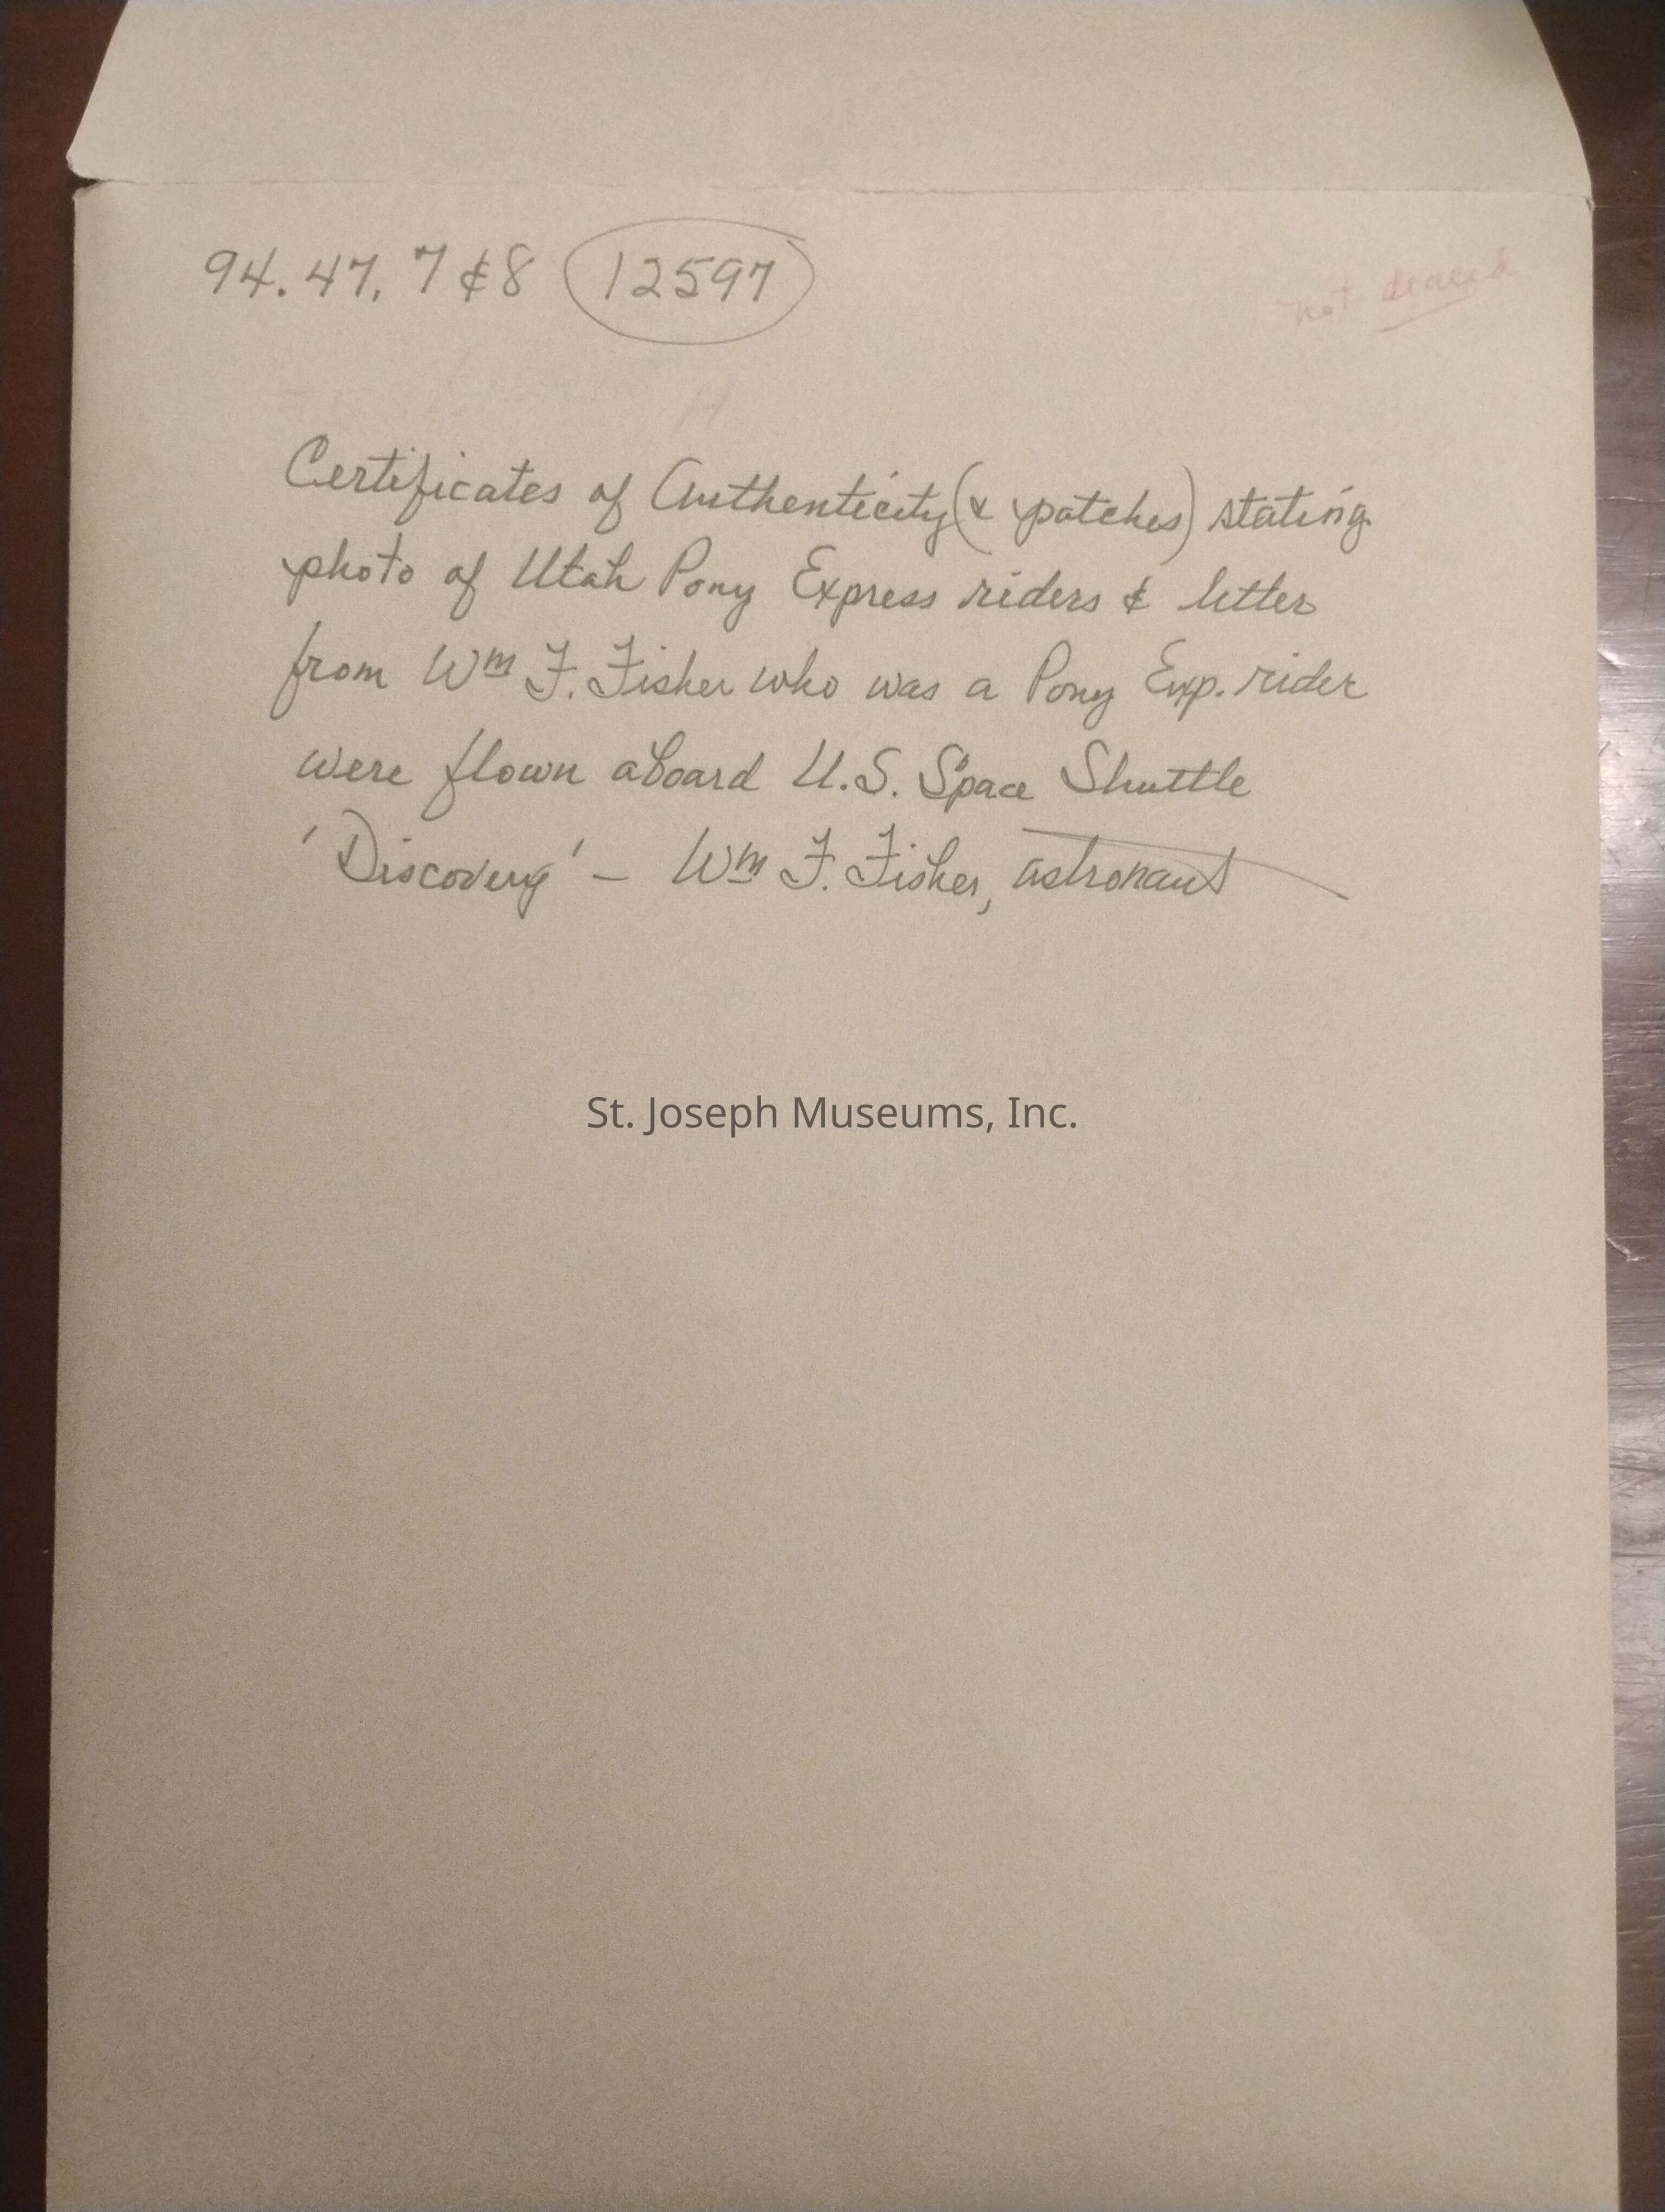 94.47.7 & 8 12597
not
Certificates of Authenticity (& patches) stating
photo of Utah Pony Express riders & letter
from Wm F. Fisher who was a Pony Exp. rider
were flown aboard U.S. Space Shuttle
'Discovery' – Wm F. Fisher, astronaut
St. Joseph Museums, Inc.